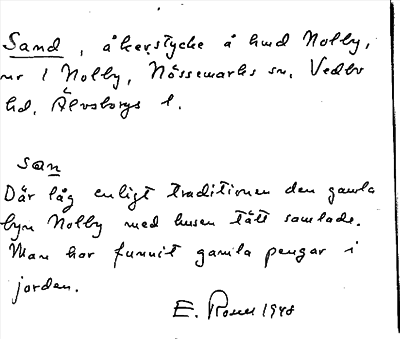 Sand, åkerstycke å hmd Nolby,
nr 1 Nolby, Nössemarks sn, Vedbo
hd, Älvsborgs l.
san
Där låg enligt traditionen den gamla
byn Nolby med husen tätt samlade.
Man har funnit gamla pengar i
jorden.
E. Rosell 1948